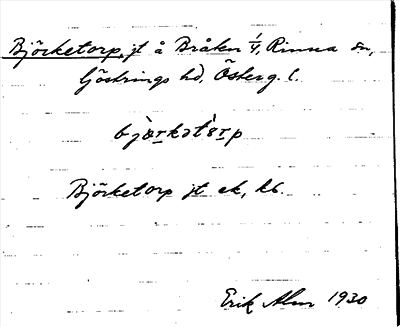 Björketorp, jt å Bråten 1/4, Rinna sn,
Göstrings hd, Österg. l.
bjærkət`ɷrp
Björketorp jt ek, kb.
Erik Alm 1930